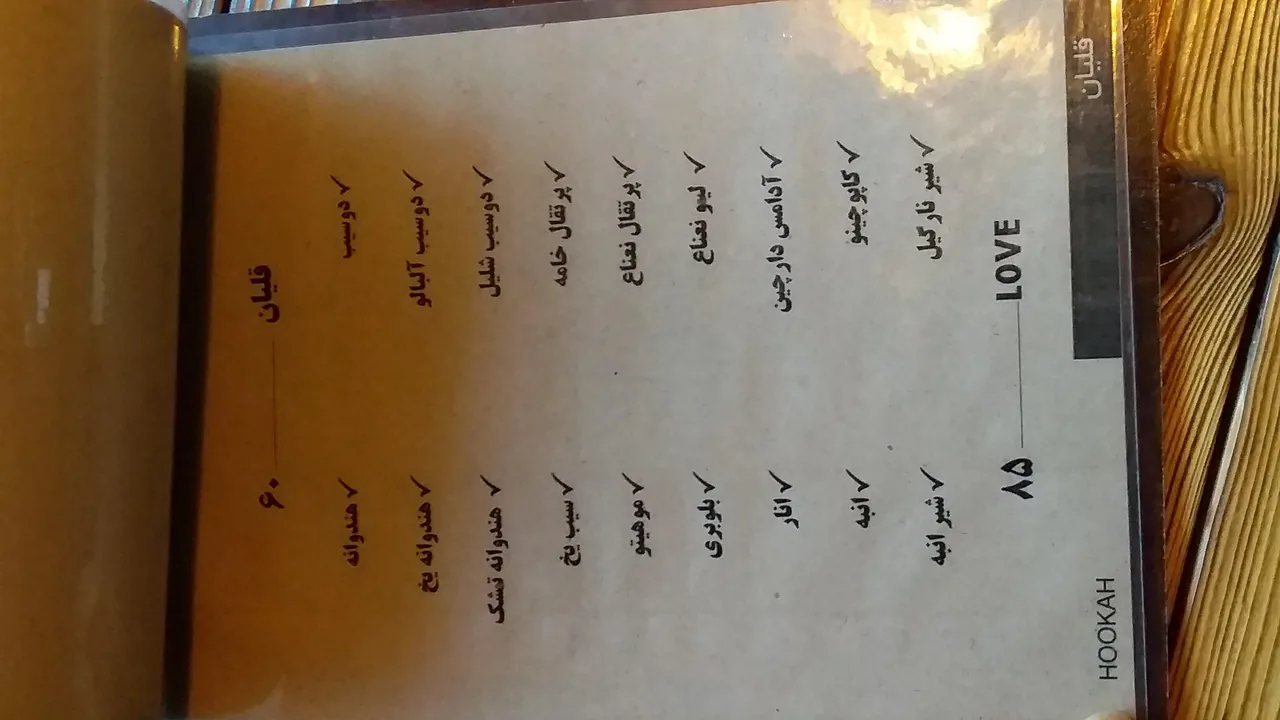 قلیان ۶۰
✓ دوسیب ✓ هندوانه
✓ دوسیب آلبالو ✓ هندوانه یخ
✓ دوسیب شلیل ✓ هندوانه تشک
✓ پرتقال خامه ✓ سیب یخ
✓ پرتقال نعناع ✓ موهیتو
✓ لیو نعناع ✓ بلوبری
✓ آدامس دارچین ✓ انار
✓ کاپوچینو ✓ انبه
✓ شیر نارگیل ✓ شیر انبه
LOVE ۸۵
قلیان HOOKAH